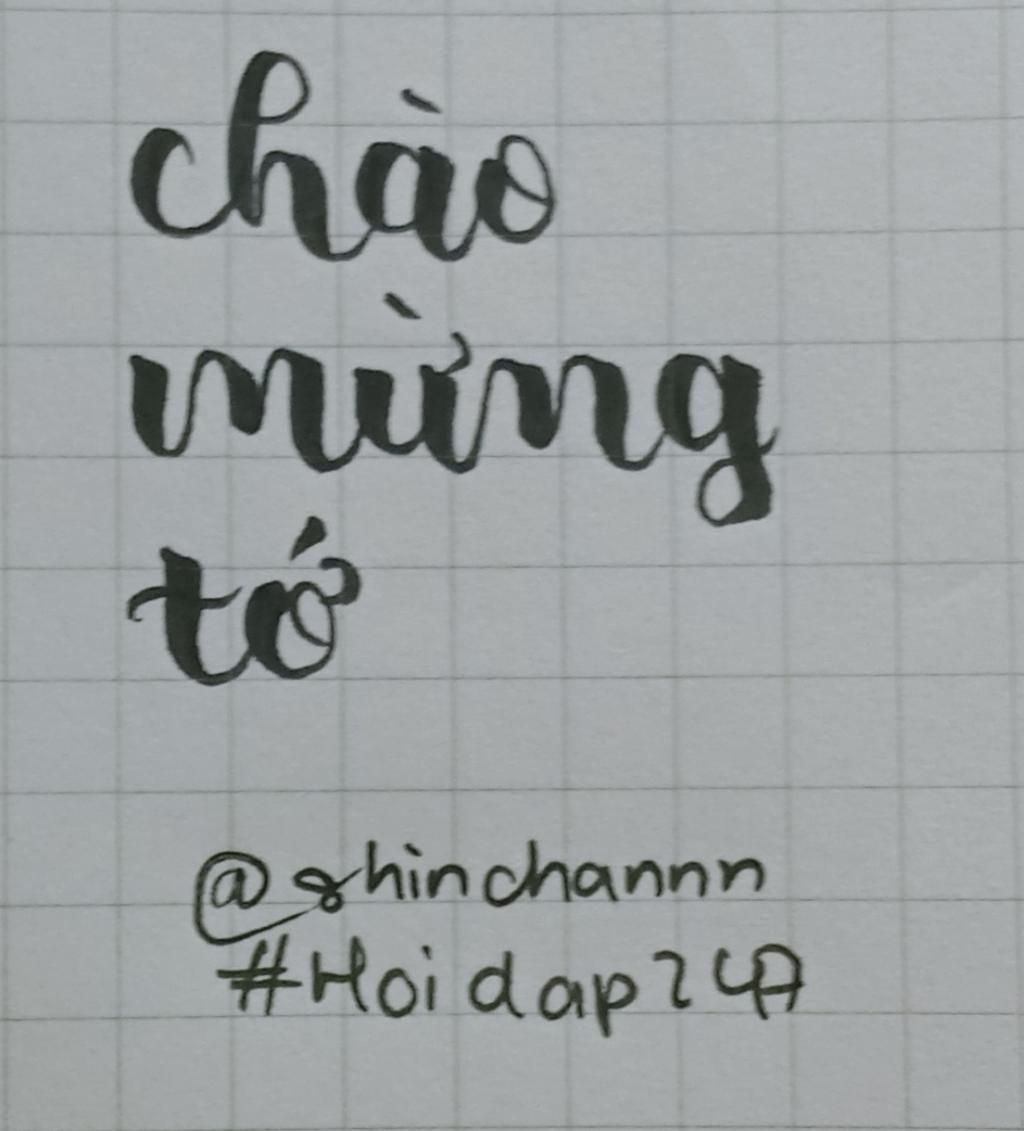 chào
mừng
tớ
@shinchannn
#Hoidap247